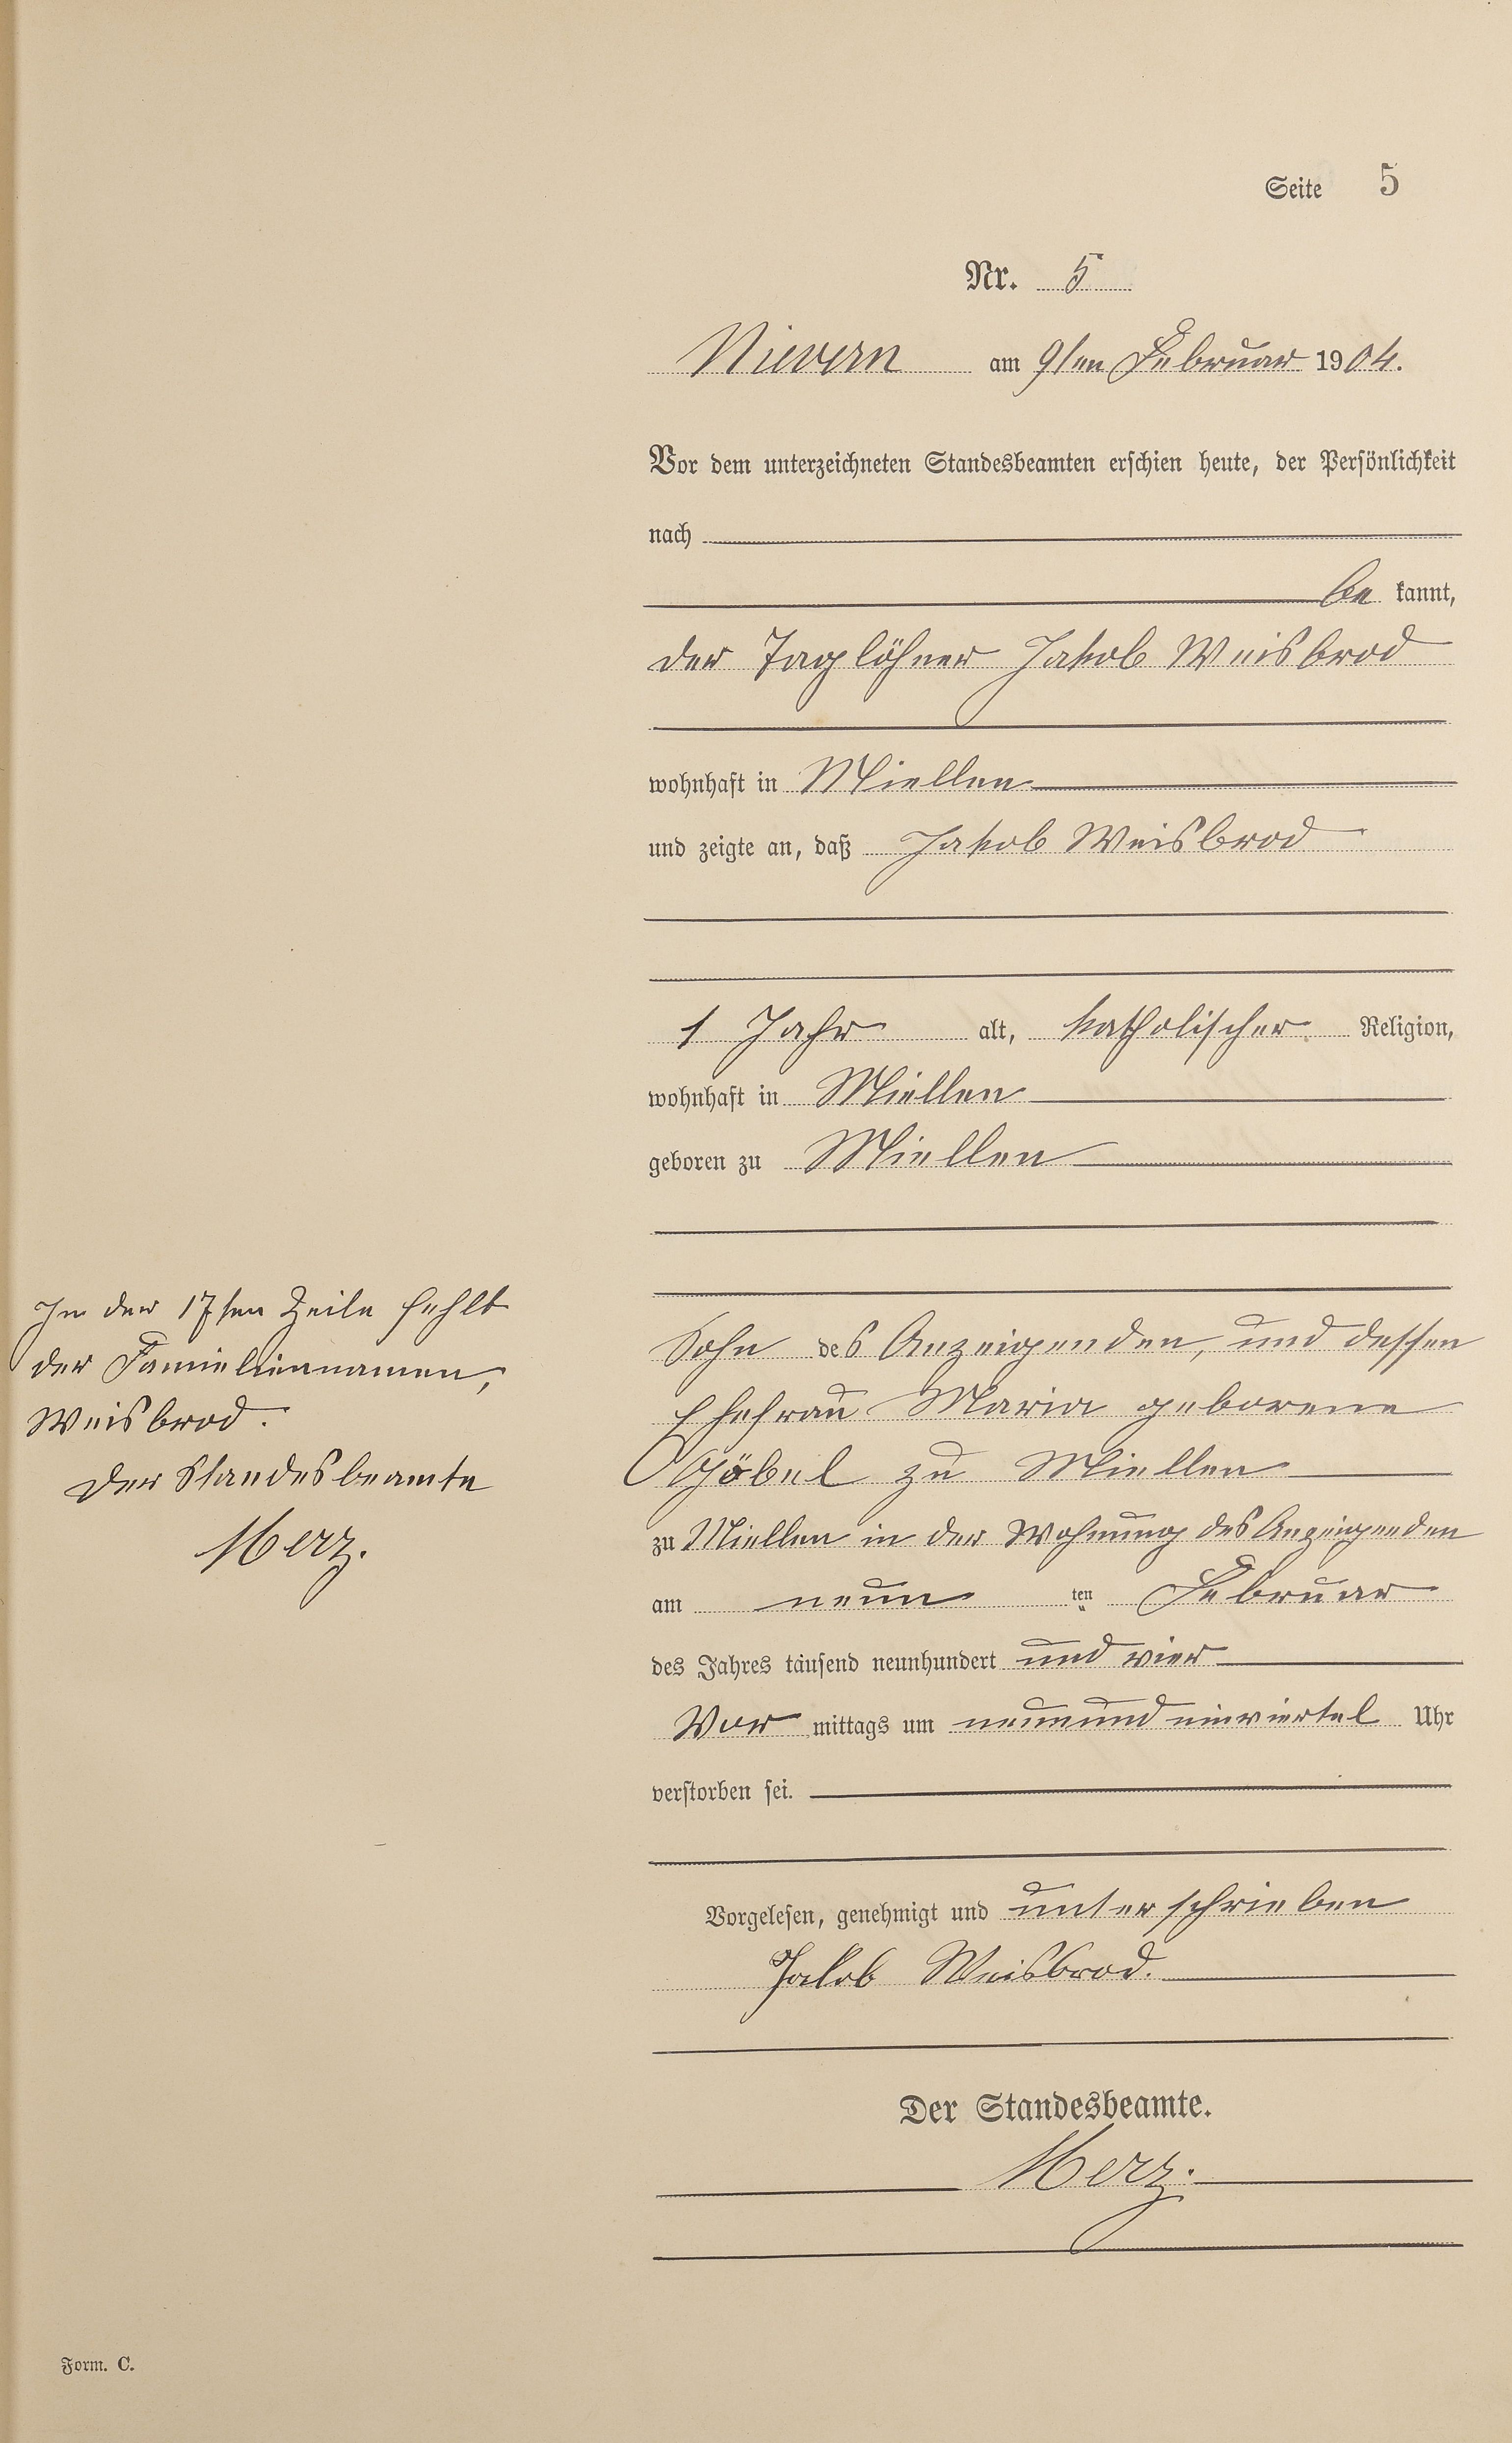 Seite 5
Nr. 5
Nievern am 9ten Februar 1904.
Vor dem unterzeichneten Standesbeamten erschien heute, der Persönlichkeit
nach
be kannt,
der Taglöhner Jakob Weisbrod
wohnhaft in Miellen
und zeigte an, daß Jakob Weisbrod
1 Jahr alt, katholischer Religion,
wohnhaft in Miellen
geboren zu Miellen
In der 17ten Zeile fehlt
der Familiennamen,
Weisbrod.
Der Standesbeamte
Merz.
Sohn des Anzeigenden, und dessen
Ehefrau Maria geborene
Göbel zu Miellen
zu Miellen in der Wohnung des Anzeigenden
am neun ten Februar
des Jahres tausend neunhundert und vier
Vor mittags um neunundeinviertel Uhr
verstorben sei.
Vorgelesen, genehmigt und unterschrieben
Jakob Weisbrod.
Der Standesbeamte.
Merz.
Form. C.